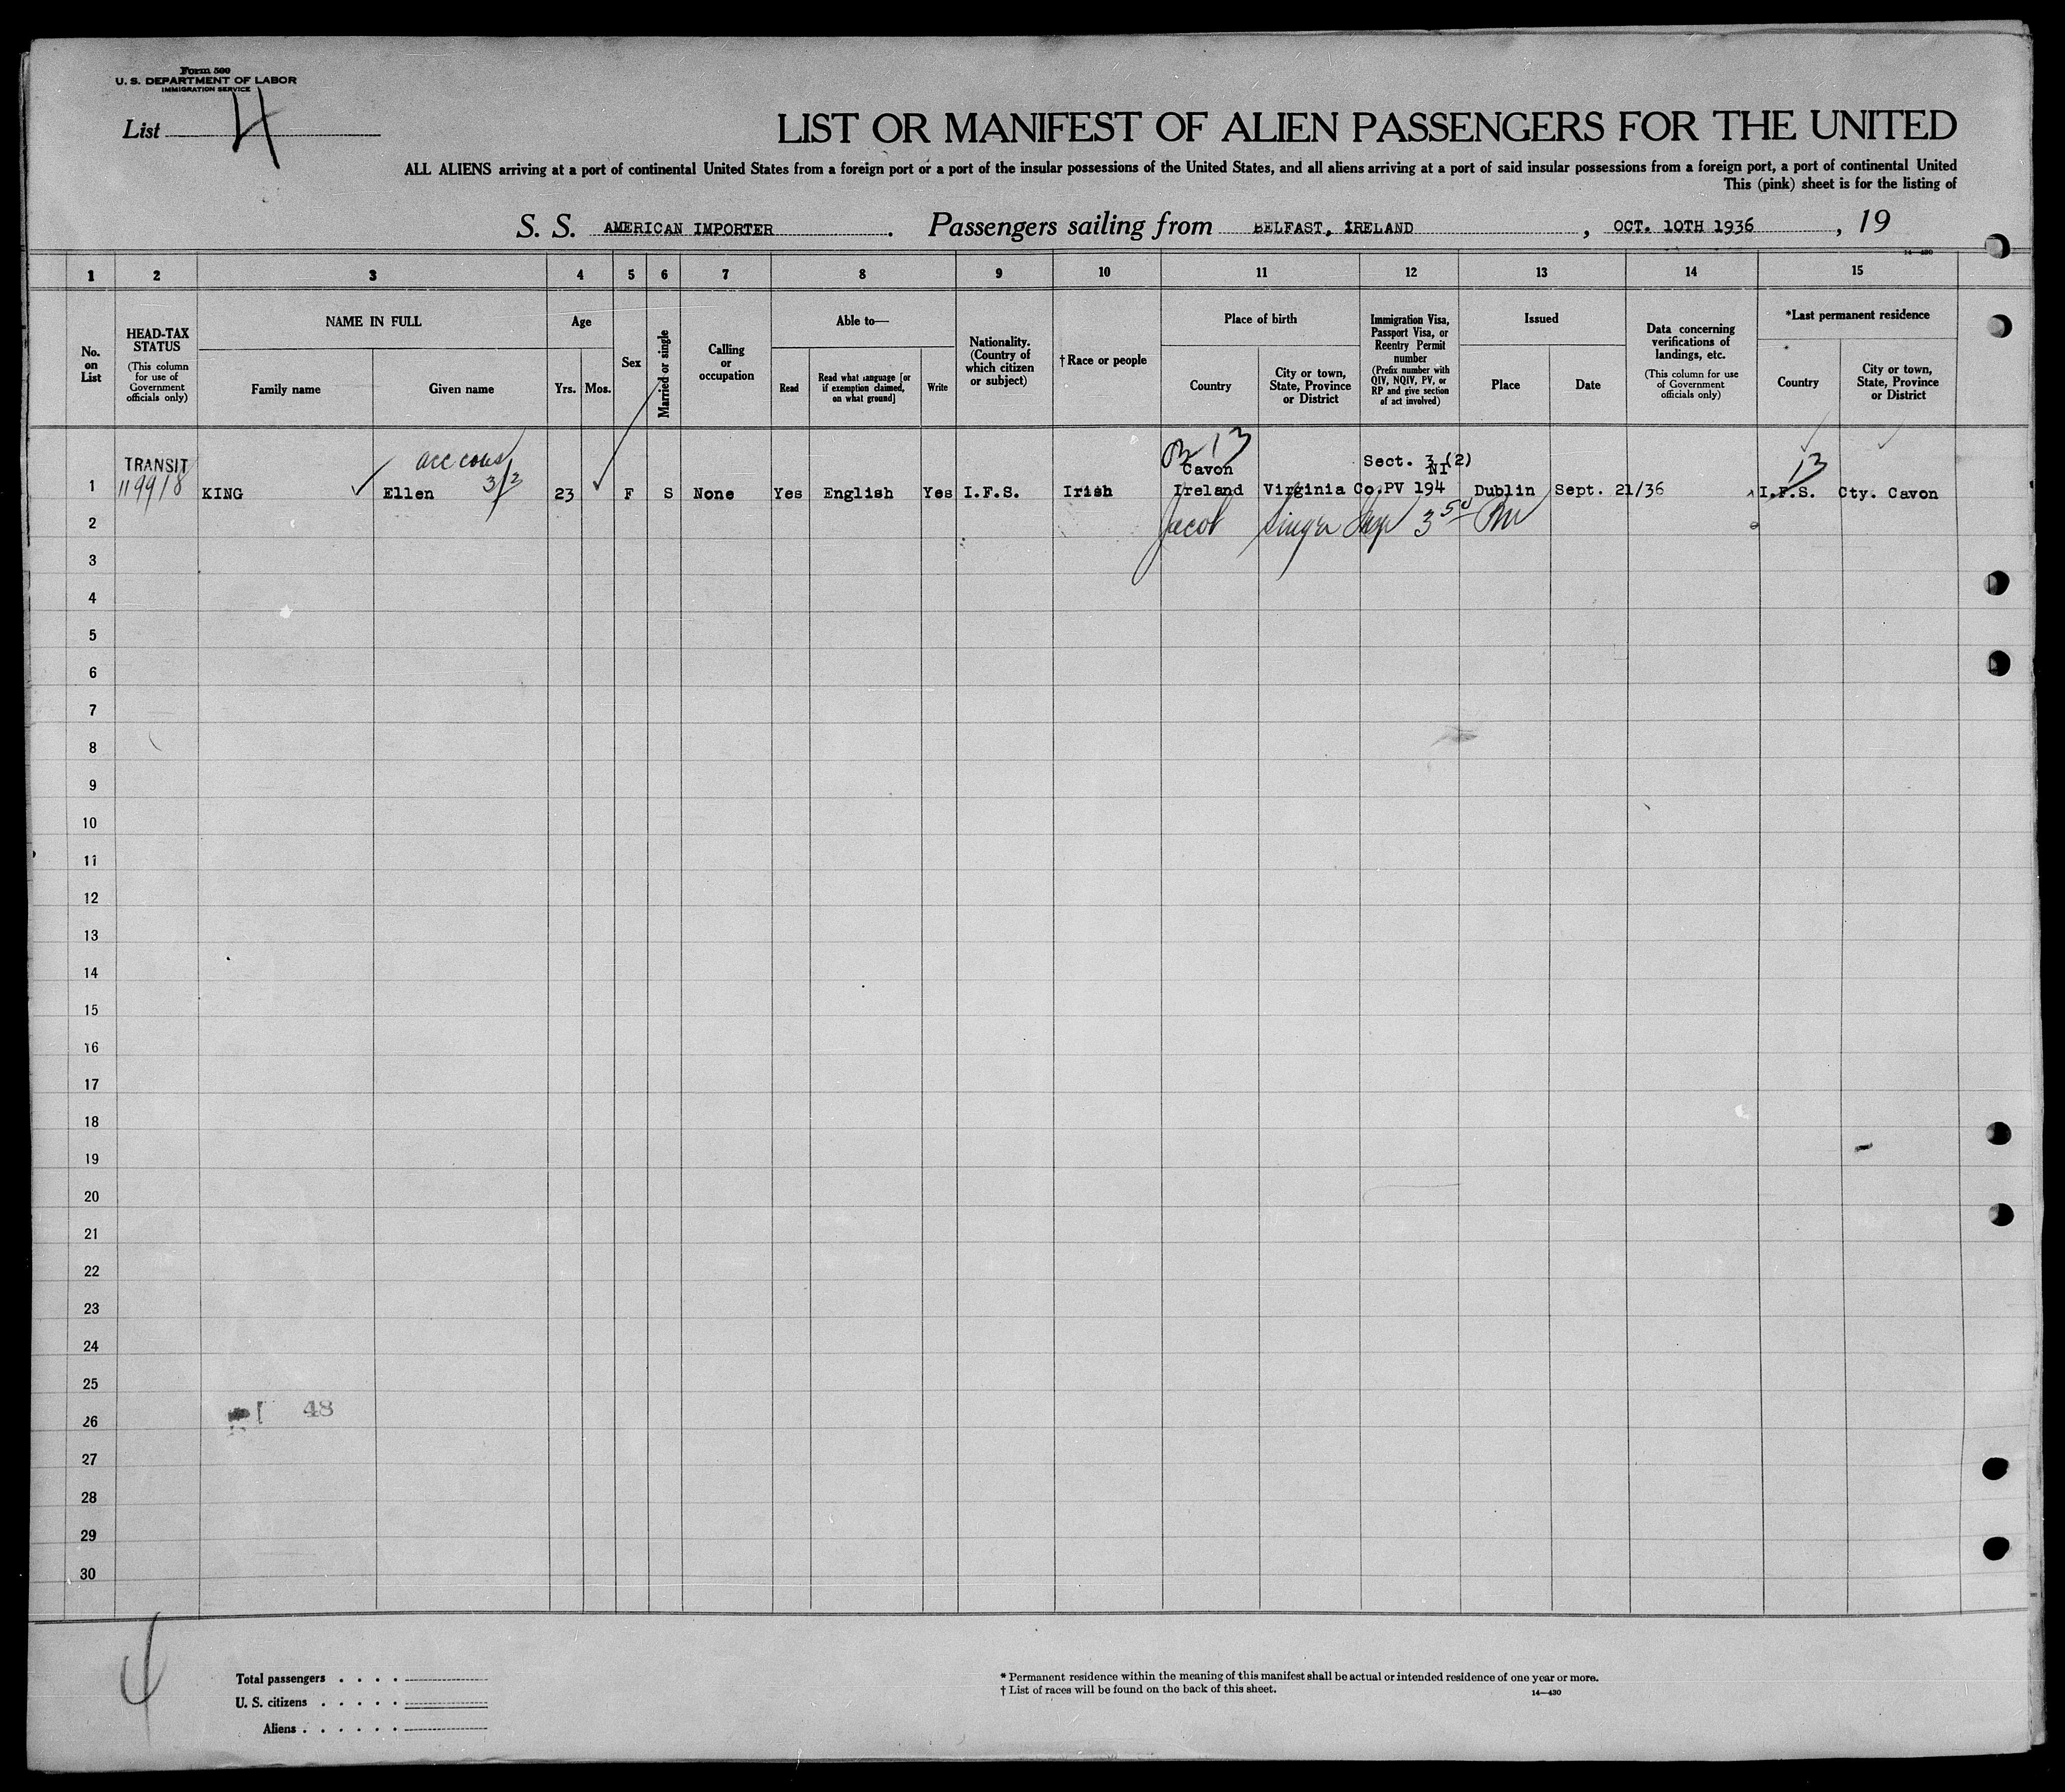 Form 500
U. S. DEPARTMENT OF LABOR
IMMIGRATION SERVICE
List 4
LIST OR MANIFEST OF ALIEN PASSENGERS FOR THE UNITED
ALL ALIENS arriving at a port of continental United States from a foreign port or a port of the insular possessions of the United States, and all aliens arriving at a port of said insular possessions from a foreign port, a port of continental United
This (pink) sheet is for the listing of
S. S. AMERICAN IMPORTER . Passengers sailing from BELFAST, IRELAND , OCT. 10TH 1936 , 19
14—430
1 2 3 4 5 6 7 8 9 10 11 12 13 14 15
No. on List
HEAD-TAX STATUS
(This column for use of Government officials only)
NAME IN FULL
Family name
Given name
Age
Yrs. Mos.
Sex
Married or single
Calling or occupation
Able to—
Read
Read what language [or if exemption claimed, on what ground]
Write
Nationality. (Country of which citizen or subject)
† Race or people
Place of birth
Country
City or town, State, Province or District
Immigration Visa, Passport Visa, or Reentry Permit number
(Prefix number with QIV, NQIV, PV, or RP and give section of act involved)
Issued
Place
Date
Data concerning verifications of landings, etc.
(This column for use of Government officials only)
*Last permanent residence
Country
City or town, State, Province or District
13
TRANSIT acc cons Cavon Sect. 3 (2) 13
NI
1 119918 KING Ellen 3/3 23 F S None Yes English Yes I.F.S. Irish Ireland Virginia Co. PV 194 Dublin Sept. 21/36 I.F.S. Cty. Cavon
2 Jacob Singer 3 50
3
4
5
6
7
8
9
10
11
12
13
14
15
16
17
18
19
20
21
22
23
24
25
26 48
27
28
29
30
4
Total passengers . . . .
U. S. citizens . . . . .
Aliens . . . . . .
* Permanent residence within the meaning of this manifest shall be actual or intended residence of one year or more.
† List of races will be found on the back of this sheet.
14—430